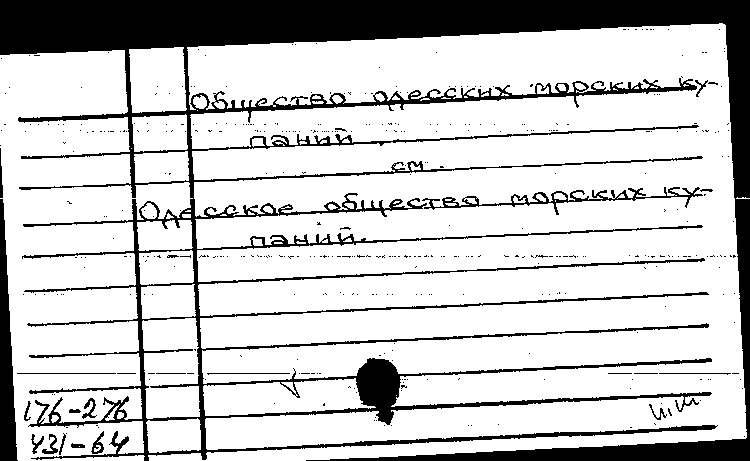 Общество одесских морских ку-
паний.
см.
Одесское общество морских ку-
паний.
176-276
431-64